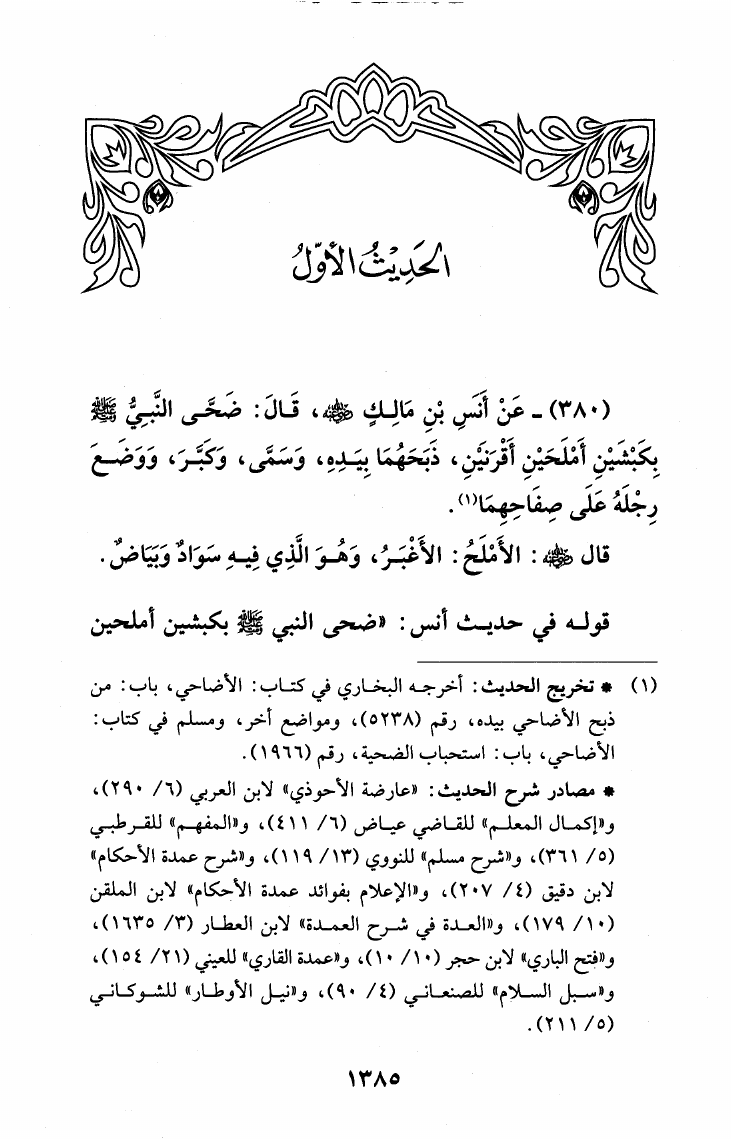 الحَدِيْثُ الأوّلُ
(٣٨٠) ـ عَنْ أَنَسِ بْنِ مَالِـكٍ ﵁، قَـالَ: ضَحَّـى النَّبِـيُّ ﷺ
بِكَبْشَيْنِ أَمْلَحَيْنِ أَقْرَنَيْنِ، ذَبَحَهُمَا بِيَـدِهِ، وَسَمَّى، وَكَبَّـرَ، وَوَضَـعَ
رِجْلَهُ عَلَى صِفَاحِهِمَا(١).
قال ﵁: الأَمْلَحُ: الأَغْبَـرُ، وَهُـوَ الَّذِي فِيـهِ سَوَادٌ وَبَيَاضٌ.
قولـه في حديـث أنس: «ضحى النبي ﷺ بكبشين أملحين
(١) * تخريج الحديث: أخرجـه البخـاري في كتـاب: الأضـاحي، باب: من
ذبح الأضاحي بيده، رقم (٥٢٣٨)، ومواضع أخر، ومسلم في كتاب:
الأضاحي، باب: استحباب الضحية، رقم (١٩٦٦).
* مصادر شرح الحديث: «عارضة الأحوذي» لابن العربي (٦/ ٢٩٠)،
و«إكمـال المعلـم» للقـاضي عيـاض (٦/ ٤١١)، و«المفهـم» للقـرطبـي
(٥/ ٣٦١)، و«شرح مسلم» للنووي (١٣/ ١١٩)، و«شرح عمدة الأحكام»
لابن دقيق (٤/ ٢٠٧)، و«الإعلام بفوائد عمدة الأحكام» لابن الملقن
(١٠/ ١٧٩)، و«العـدة في شـرح العمـدة» لابن العطـار (٣/ ١٦٣٥)،
و«فتح الباري» لابن حجر (١٠/ ١٠)، و«عمدة القاري» للعيني (٢١/ ١٥٤)،
و«سبـل السـلام» للصنعـانـي (٤/ ٩٠)، و«نيـل الأوطـار» للشـوكـانـي
(٥/ ٢١١).
١٣٨٥